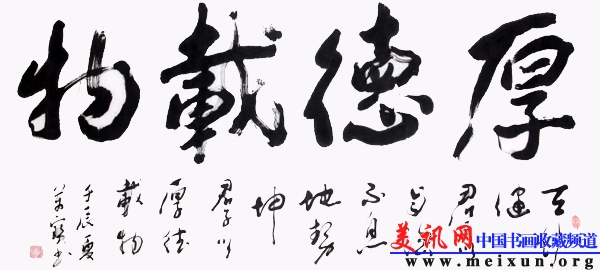 厚德載物
天行
健
君子以
自強
不息
地勢
坤
君子以
厚德
載物
壬辰夏
美讯网 中国书画收藏频道
www.meixun.org